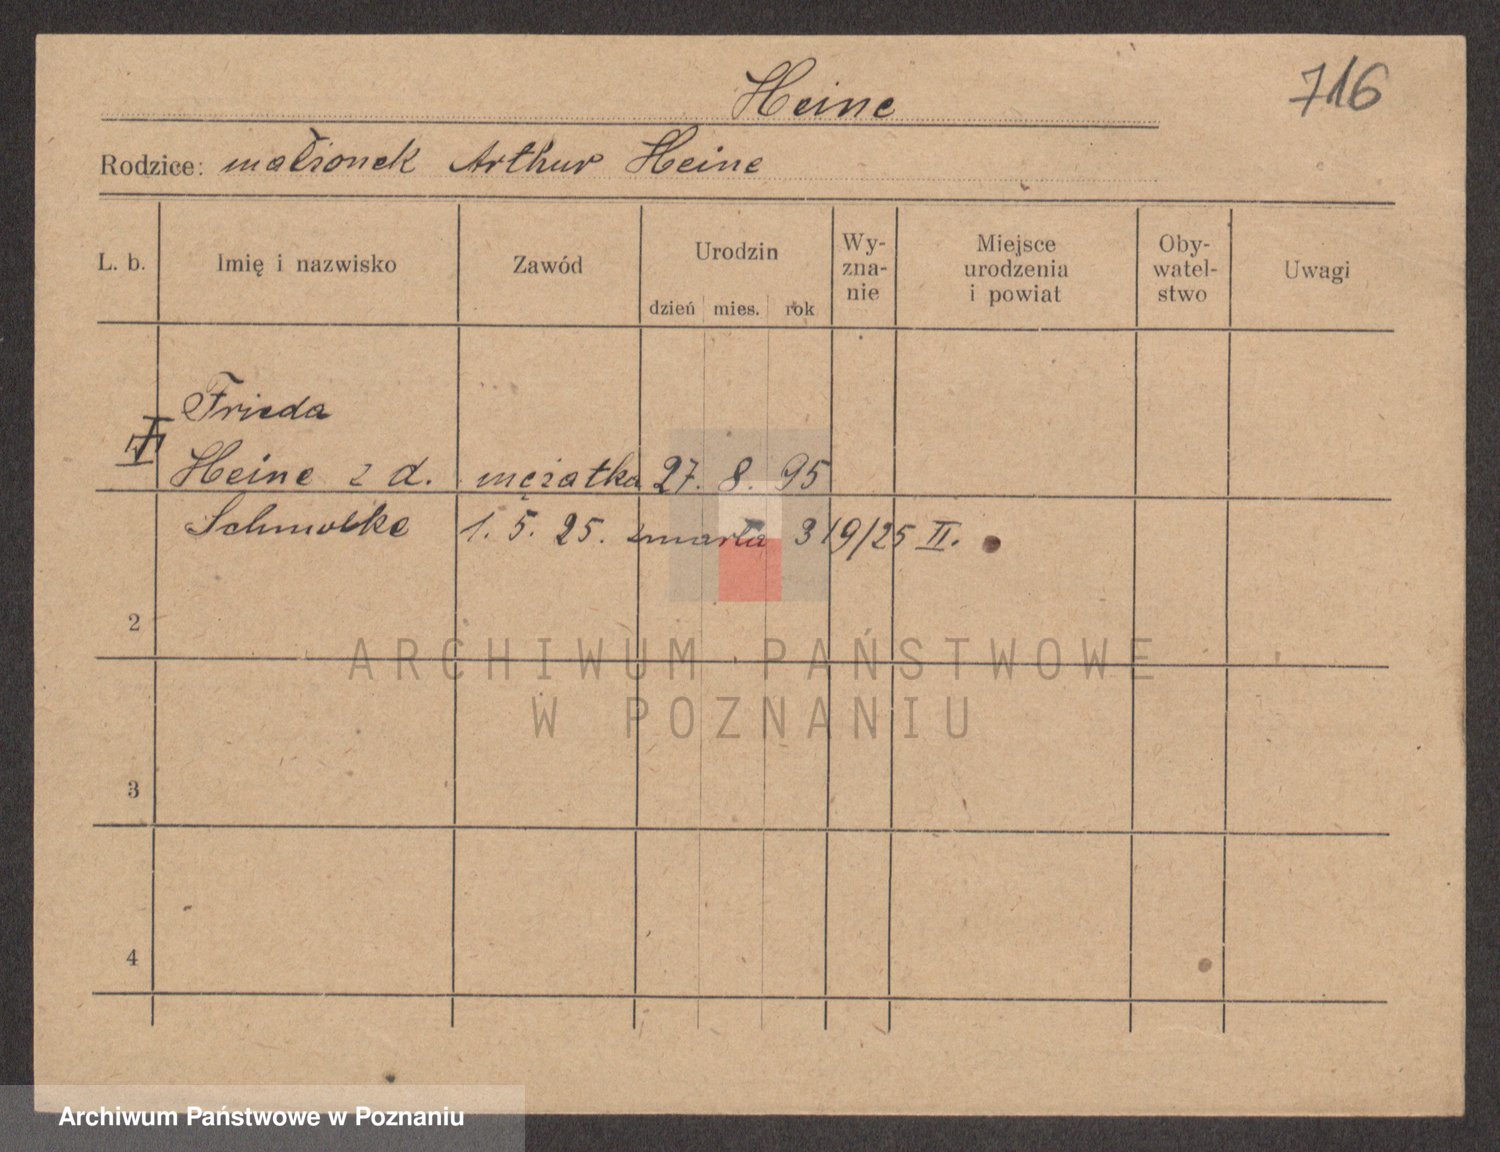 Heine
716
Rodzice: małżonek Arthur Heine
L. b.
Imię i nazwisko
Zawód
Urodzin
dzień mies. rok
Wy-
zna-
nie
Miejsce
urodzenia
i powiat
Oby-
watel-
stwo
Uwagi
Frieda
Heine z d. mężatka 27. 8. 95
Schmolke 1. 5. 25. zmarła 319/25 II.
2
ARCHIWUM PAŃSTWOWE
W POZNANIU
3
4
Archiwum Państwowe w Poznaniu